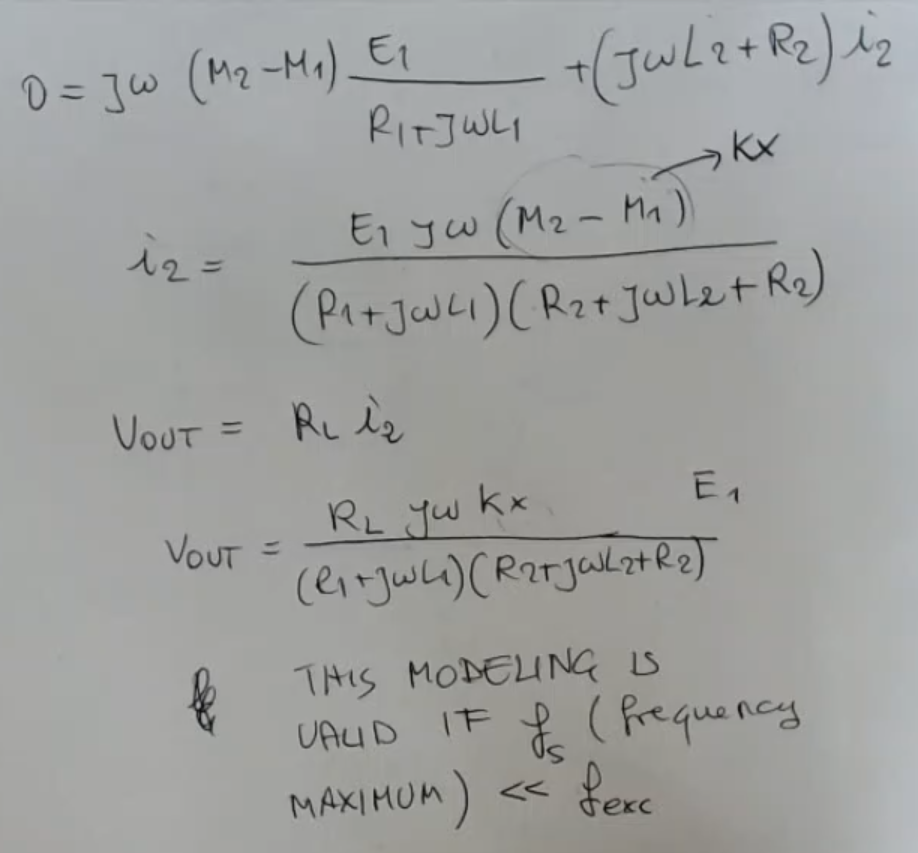 0 = jω (M2 - M1) E1 / (R1 + jωL1) + (jωL2 + R2) i2
→ Kx
i2 = E1 jω (M2 - M1) / (R1 + jωL1)(R2 + jωL2 + R2)
VOUT = RL i2
VOUT = RL jω Kx / (R1 + jωL1)(R2 + jωL2 + R2) E1
THIS MODELING IS
VALID IF fs (frequency
MAXIMUM) << fexc